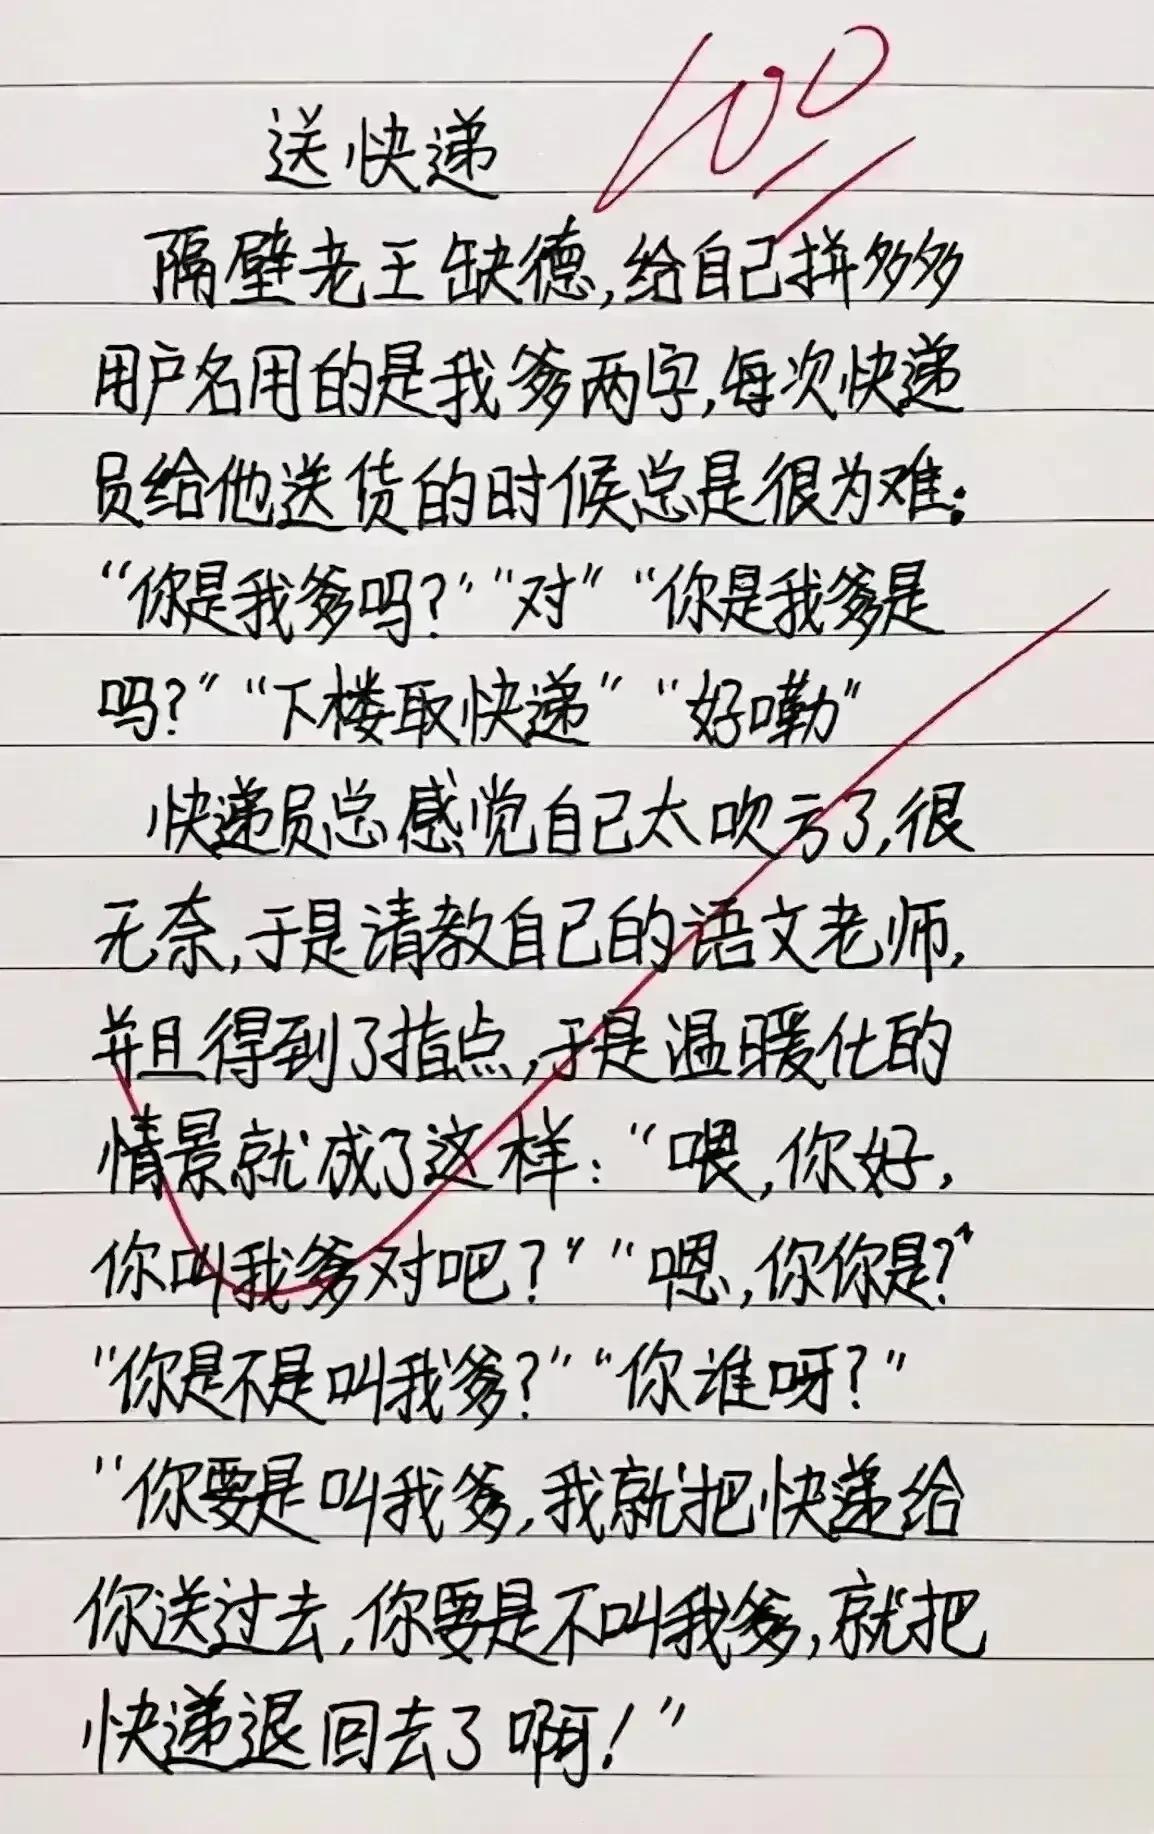 100
送快递
隔壁老王缺德,给自己拼多多
用户名用的是我爹两字,每次快递
员给他送货的时候总是很为难:
“你是我爹吗?”“对”“你是我爹是
吗?”“下楼取快递”“好嘞”
快递员总感觉自己太吹亏了,很
无奈,于是请教自己的语文老师,
并且得到了指点,于是温暖化的
情景就成了这样:“喂,你好,
你叫我爹对吧?”“嗯,你你是?”
“你是不是叫我爹?”“你谁呀?”
“你要是叫我爹,我就把快递给
你送过去,你要是不叫我爹,就把
快递退回去了啊!”